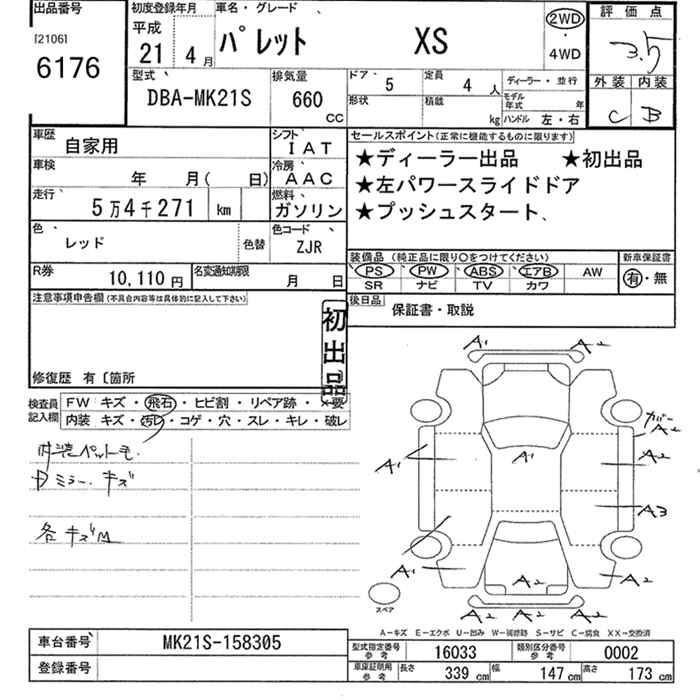 出品番号
[2106]
6176
初度登録年月
平成
21 4月
車名・グレード
パレット XS
2WD
・
4WD
評価点
3.5
外装 内装
C B
型式
DBA-MK21S
排気量
660
CC
ドア 5
定員 4人
ディーラー・並行
形状
積載 kg
モデル年式 年
ハンドル 左・右
車歴 自家用
シフト IAT
車検 年 月( 日)
冷房 AAC
走行 5万4千271 km
燃料 ガソリン
色 レッド
色替
色コード ZJR
R券 10,110円
名変通知期限 月 日
セールスポイント(正常に機能するものに限ります)
★ディーラー出品 ★初出品
★左パワースライドドア
★プッシュスタート、
装備品(純正品に限り○をつけてください)
PS・PW・ABS・エアB・AW
SR ナビ TV カワ
新車保証書
有・無
後日品 保証書・取説
注意事項申告欄(不具合内容等は具体的に記入して下さい)
初出品
修復歴 有〔箇所
検査員記入欄
FW キズ・飛石・ヒビ割・リペア跡・×要
内装 キズ・汚レ・コゲ・穴・スレ・キレ・破レ
内装ペット毛.
Dミラー.キズ
各キズM
A1 A2
ガバー A2
A1 A1 A2
A3
A1 A2 A2
A2 A2
スペア
A-キズ E-エクボ U-凹み W-補修跡 S-サビ C-腐食 XX-交換済
車台番号 MK21S-158305
登録番号
型式指定番号参考 16033
類別区分番号参考 0002
車庫証明用参考 長さ 339cm 幅 147cm 高さ 173cm